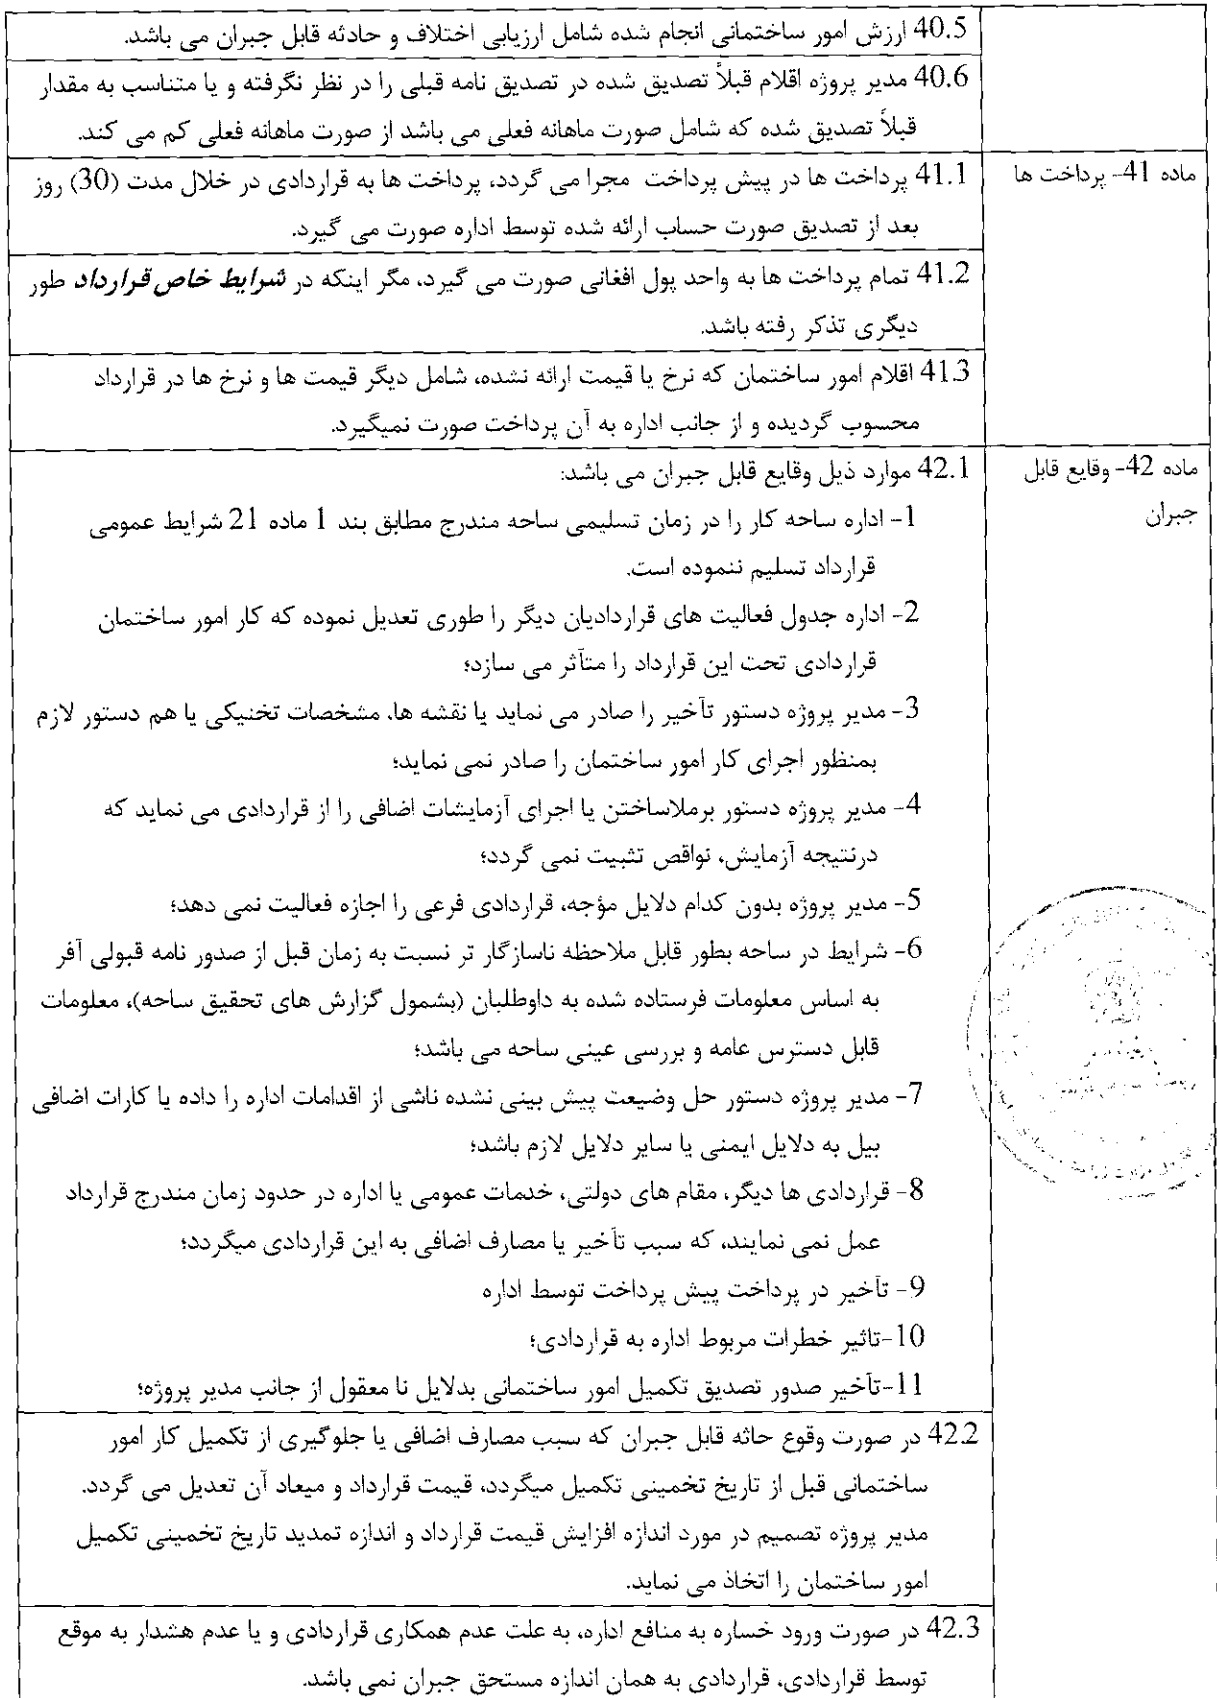 40.5 ارزش امور ساختمانی انجام شده شامل ارزیابی اختلاف و حادثه قابل جبران می باشد.
40.6 مدیر پروژه اقلام قبلاً تصدیق شده در تصدیق نامه قبلی را در نظر نگرفته و یا متناسب به مقدار
قبلاً تصدیق شده که شامل صورت ماهانه فعلی می باشد از صورت ماهانه فعلی کم می کند.
ماده 41- پرداخت ها
41.1 پرداخت ها در پیش پرداخت مجرا می گردد، پرداخت ها به قراردادی در خلال مدت (30) روز
بعد از تصدیق صورت حساب ارائه شده توسط اداره صورت می گیرد.
41.2 تمام پرداخت ها به واحد پول افغانی صورت می گیرد، مگر اینکه در شرایط خاص قرارداد طور
دیگری تذکر رفته باشد.
41.3 اقلام امور ساختمان که نرخ یا قیمت ارائه نشده، شامل دیگر قیمت ها و نرخ ها در قرارداد
محسوب گردیده و از جانب اداره به آن پرداخت صورت نمیگیرد.
ماده 42- وقایع قابل
جبران
42.1 موارد ذیل وقایع قابل جبران می باشد:
1- اداره ساحه کار را در زمان تسلیمی ساحه مندرج مطابق بند 1 ماده 21 شرایط عمومی
قرارداد تسلیم ننموده است.
2- اداره جدول فعالیت های قراردادیان دیگر را طوری تعدیل نموده که کار امور ساختمان
قراردادی تحت این قرارداد را متأثر می سازد؛
3- مدیر پروژه دستور تأخیر را صادر می نماید یا نقشه ها، مشخصات تخنیکی یا هم دستور لازم
بمنظور اجرای کار امور ساختمان را صادر نمی نماید؛
4- مدیر پروژه دستور برملاساختن یا اجرای آزمایشات اضافی را از قراردادی می نماید که
درنتیجه آزمایش، نواقص تثبیت نمی گردد؛
5- مدیر پروژه بدون کدام دلایل مؤجه، قراردادی فرعی را اجازه فعالیت نمی دهد؛
6- شرایط در ساحه بطور قابل ملاحظه ناسازگار تر نسبت به زمان قبل از صدور نامه قبولی آفر
به اساس معلومات فرستاده شده به داوطلبان (بشمول گزارش های تحقیق ساحه)، معلومات
قابل دسترس عامه و بررسی عینی ساحه می باشد؛
7- مدیر پروژه دستور حل وضیعت پیش بینی نشده ناشی از اقدامات اداره را داده یا کارات اضافی
بیل به دلایل ایمنی یا سایر دلایل لازم باشد؛
8- قراردادی ها دیگر، مقام های دولتی، خدمات عمومی یا اداره در حدود زمان مندرج قرارداد
عمل نمی نمایند، که سبب تأخیر یا مصارف اضافی به این قراردادی میگردد؛
9- تأخیر در پرداخت پیش پرداخت توسط اداره
10-تاثیر خطرات مربوط اداره به قراردادی؛
11-تأخیر صدور تصدیق تکمیل امور ساختمانی بدلایل نا معقول از جانب مدیر پروژه؛
42.2 در صورت وقوع حاثه قابل جبران که سبب مصارف اضافی یا جلوگیری از تکمیل کار امور
ساختمانی قبل از تاریخ تخمینی تکمیل میگردد، قیمت قرارداد و میعاد آن تعدیل می گردد.
مدیر پروژه تصمیم در مورد اندازه افزایش قیمت قرارداد و اندازه تمدید تاریخ تخمینی تکمیل
امور ساختمان را اتخاذ می نماید.
42.3 در صورت ورود خساره به منافع اداره، به علت عدم همکاری قراردادی و یا عدم هشدار به موقع
توسط قراردادی، قراردادی به همان اندازه مستحق جبران نمی باشد.